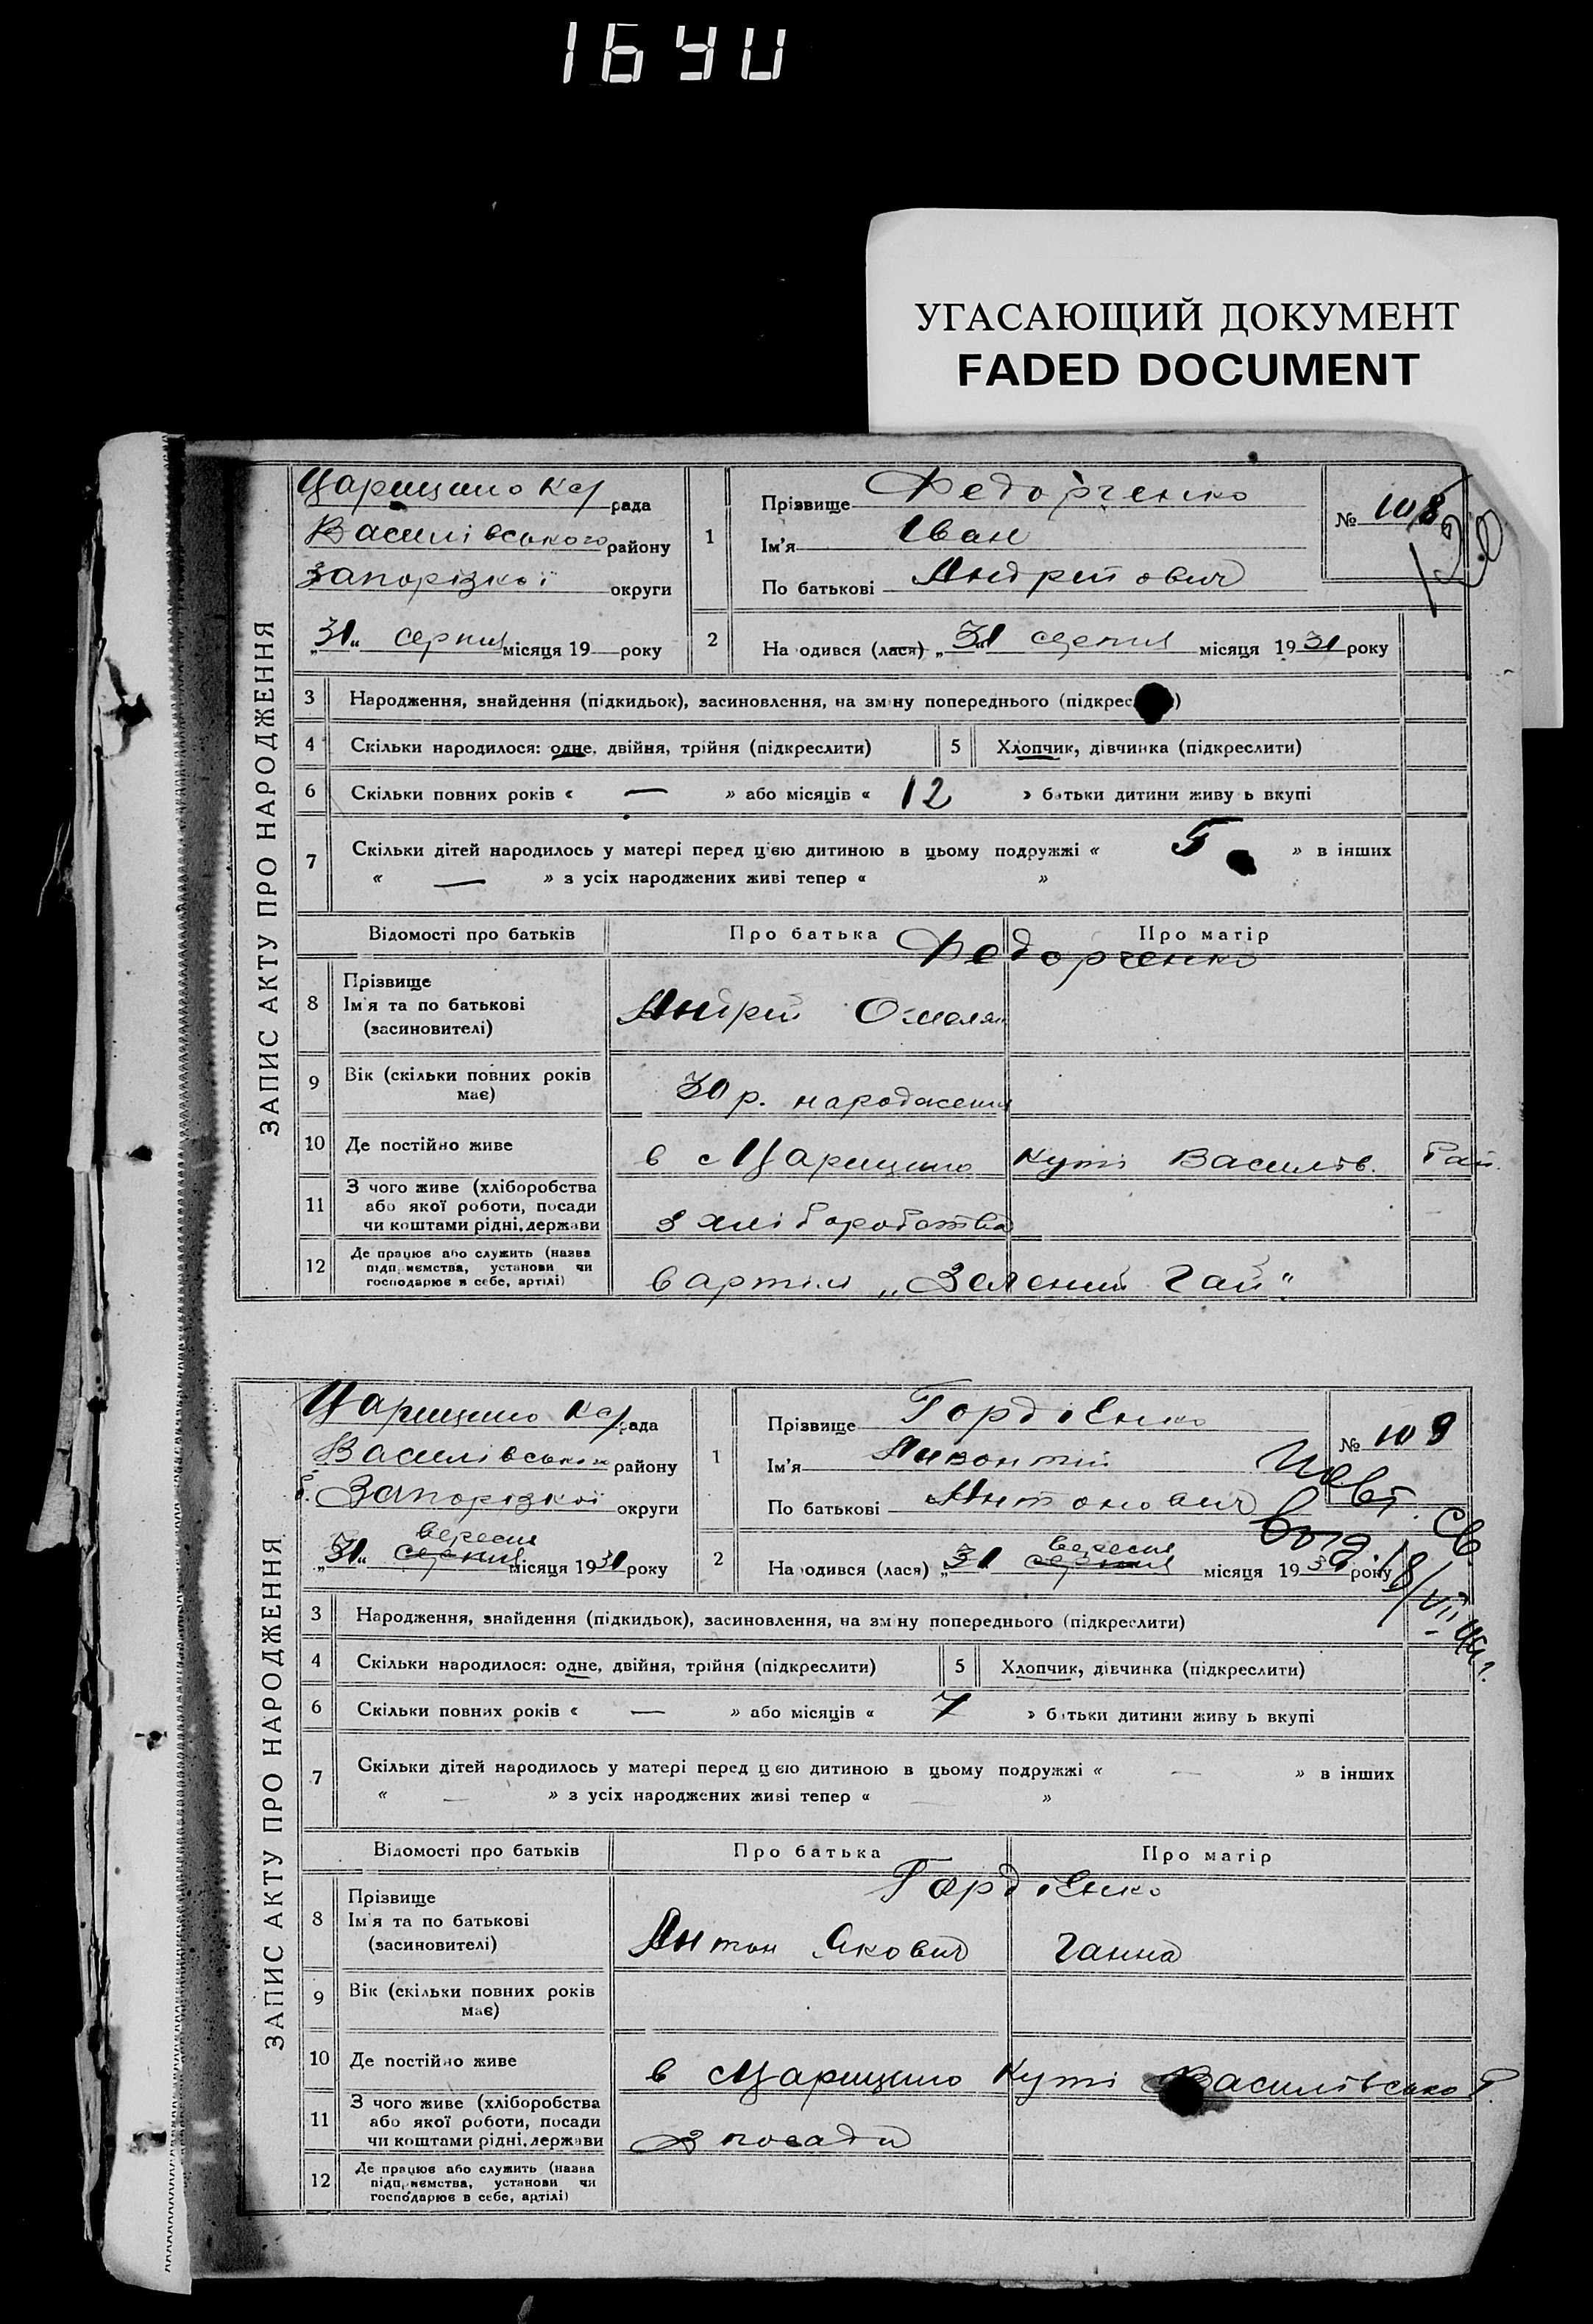 1640
УГАСАЮЩИЙ ДОКУМЕНТ
FADED DOCUMENT
ЗАПИС АКТУ ПРО НАРОДЖЕННЯ
Царицино Ку рада
Василівського району
Запорізкої округи
„31“ серпня місяця 19 року
1
Прізвище Федорченко
Ім'я Іван
По батькові Андрійович
№ 108
120
2 На одився (лася) „31“ серпня місяця 1931 року
3 Народження, знайдення (підкидьок), засиновлення, на зм ну попереднього (підкрес )
4 Скільки народилося: одне, двійня, трійня (підкреслити)
5 Хлопчик, дівчинка (підкреслити)
6 Скільки повних років « — » або місяців « 12 » батьки дитини живу ь вкупі
7 Скільки дітей народилось у матері перед цією дитиною в цьому подружжі « 5 » в інших
« — » з усіх народжених живі тепер « »
Відомості про батьків Про батька Про матір
Федорченко
8 Прізвище
Ім'я та по батькові
(засиновителі)
Андрій Омелян
9 Вік (скільки повних років
має)
30 р. народження
10 Де постійно живе в с Царицино Куті Василів. Рай.
11 З чого живе (хліборобства
або якої роботи, посади
чи коштами рідні, держави
з хліборобства
12 Де працює або служить (назва
підприємства, установи чи
господарює в себе, артілі)
в артілі „Зелений Гай“
ЗАПИС АКТУ ПРО НАРОДЖЕННЯ
Царицино Ку рада
Василівський району
Запорізкої округи
вересня
„31“ серпня місяця 1931 року
1
Прізвище Гордієнко
Ім'я
По батькові Антонович
№ 109
св.
18/VII
вересня
2 На одився (лася) „31 серпня місяця 1931 року
3 Народження, знайдення (підкидьок), засиновлення, на зм ну попереднього (підкреслити)
4 Скільки народилося: одне, двійня, трійня (підкреслити)
5 Хлопчик, дівчинка (підкреслити)
6 Скільки повних років « — » або місяців « 7 » батьки дитини живу ь вкупі
7 Скільки дітей народилось у матері перед цією дитиною в цьому подружжі « — » в інших
« — » з усіх народжених живі тепер « — »
Відомості про батьків Про батька Про матір
Гордієнко
8 Прізвище
Ім'я та по батькові
(засиновителі)
Антон Якович Ганна
9 Вік (скільки повних років
має)
10 Де постійно живе в с Царицино Куті Василівсько Р.
11 З чого живе (хліборобства
або якої роботи, посади
чи коштами рідні, держави
З посади
12 Де працює або служить (назва
підприємства, установи чи
господарює в себе, артілі)